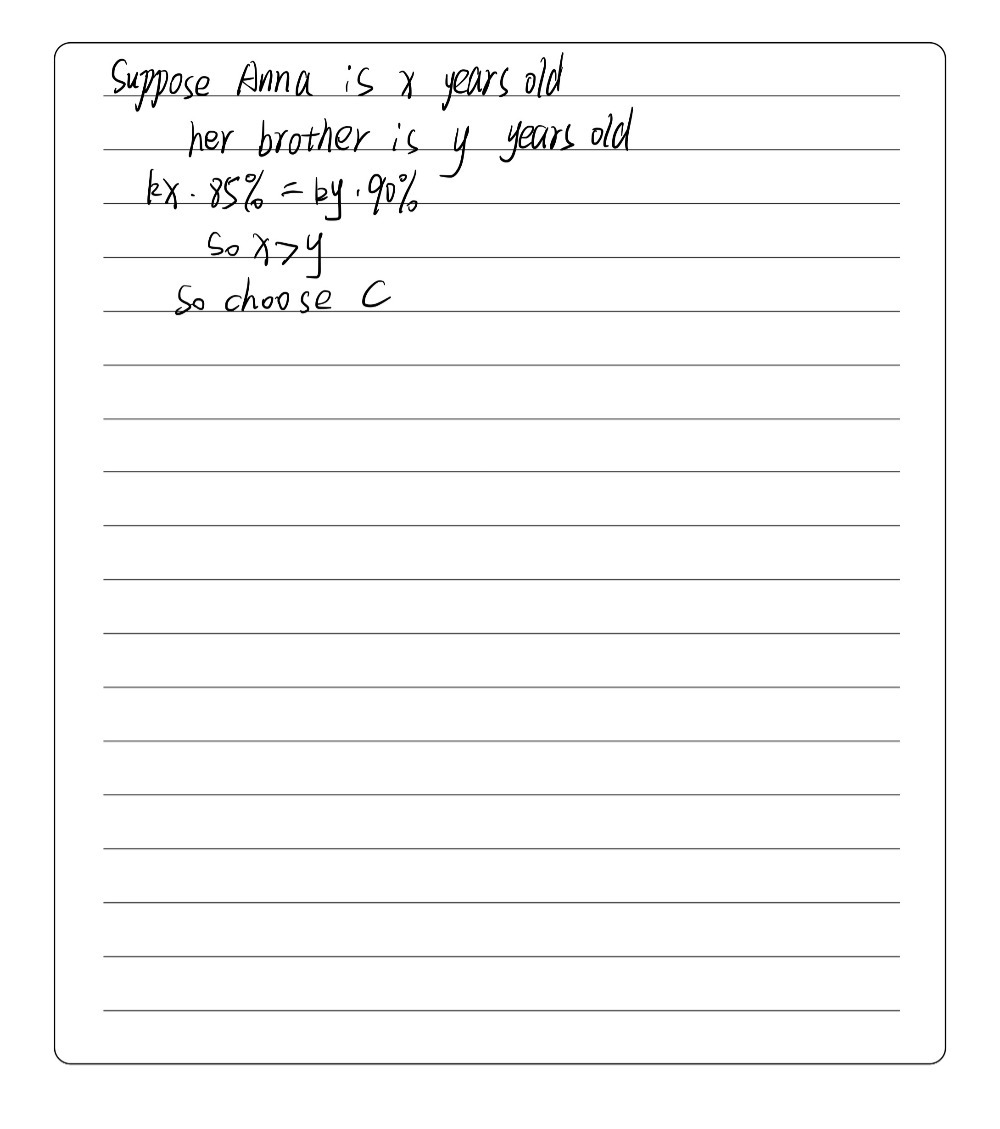 Suppose Anna is x years old
her brother is y years old
kx · 85% = ky · 90%
So x > y
So choose C